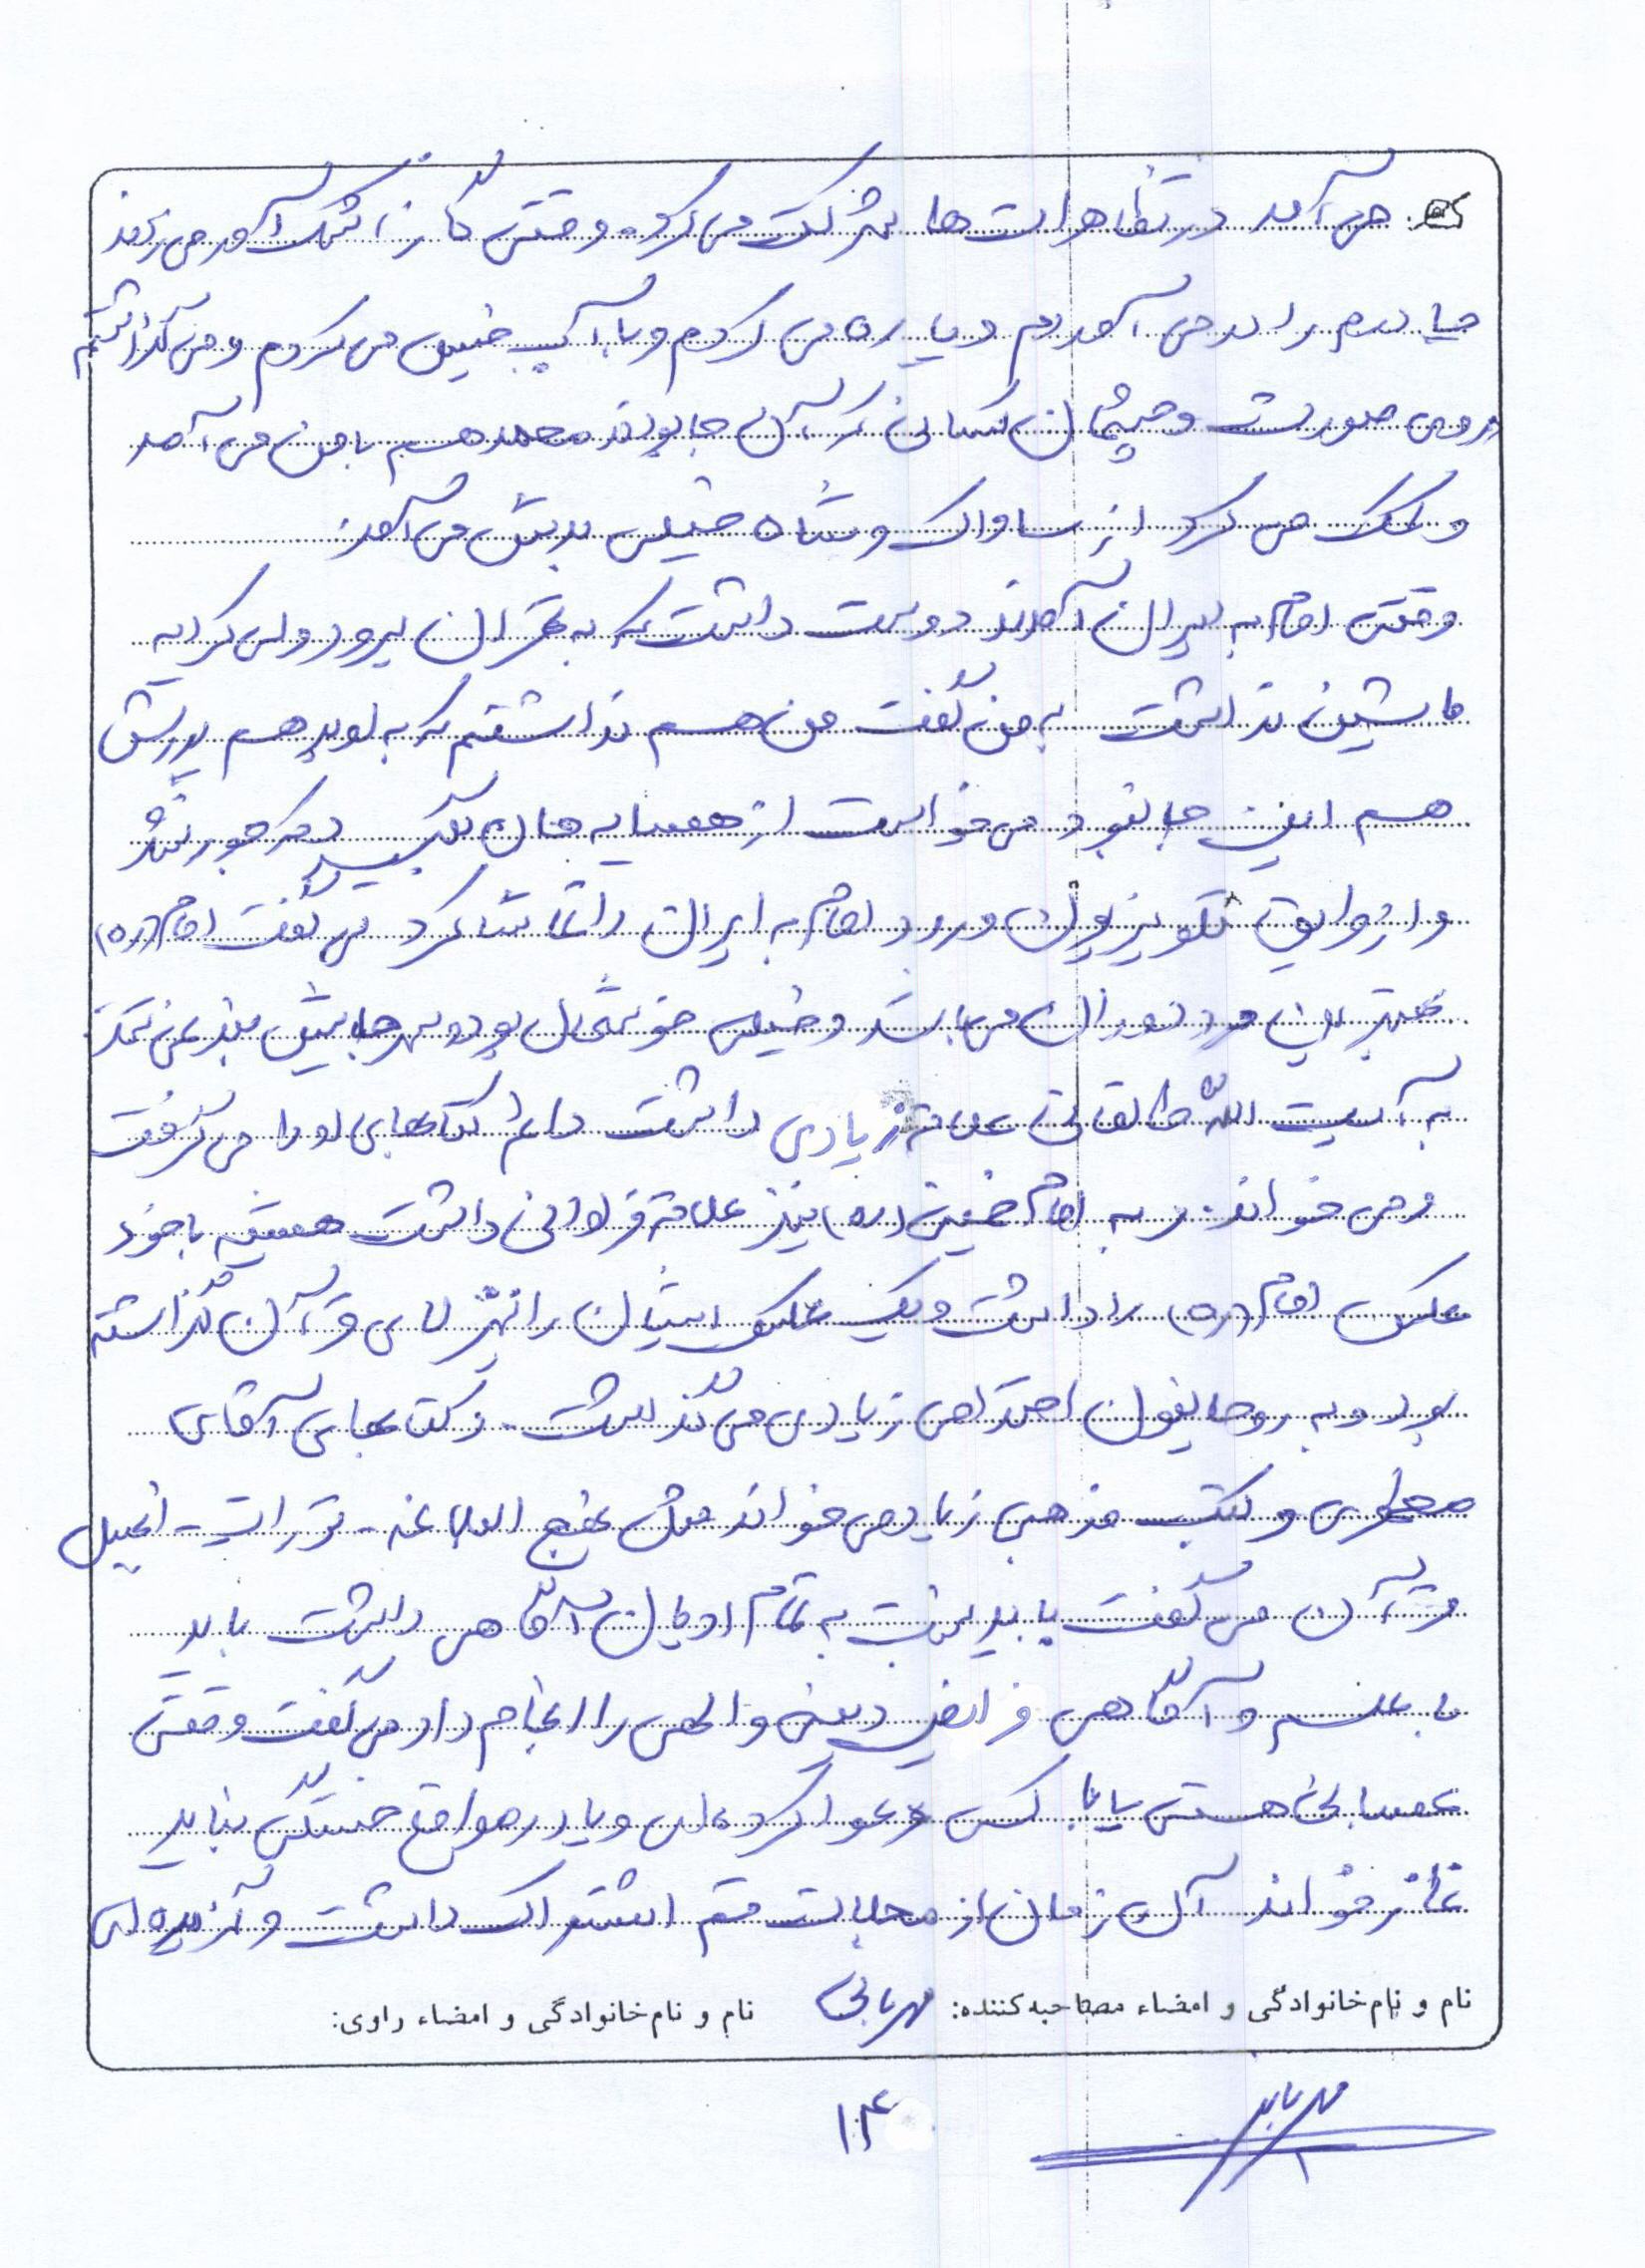 می آمد در تظاهرات ها شرکت می کرد. وقتی گاز اشک آور می زدند
چادرم را در می آوردم و پاره می کردم و با آب خیس می کردم و می گذاشتم
روی صورت و چشمان کسانی که آن جا بودند محمد هم با من می آمد
و کمک می کرد از ساواک و شاه خیلی بدش می آمد.
وقتی امام به ایران آمدند دوست داشت که به تهران برود ولی کرایه
ماشین نداشت به من گفت من هم نداشتم که به او بدهم پدرش
هم این جا نبود می خواست از همسایه هان بگیرد دیگر جور نشد
و از طریق تلویزیون ورود امام به ایران را تماشا کرد می گفت امام (ره)
بهترین مرد دوران می باشد و خیلی خوشحال بود سر جایش بند نمی شد.
به آیت الله طالقانی علاقه زیادی داشت دائم کتابهای او را می گرفت
و می خواند. و به امام خمینی (ره) نیز علاقه فراوانی داشت همیشه با خود
عکس امام (ره) را داشت و یک عکس ایشان را نیز لای قرآن گذاشته
بود و به روحانیون احترام زیادی می گذاشت. و کتابهای آقای
مطهری و کتب مذهبی زیاد می خواند مثل نهج البلاغه - تورات - انجیل
قرآن می گفت باید نسبت به تمام ادیان آگاهی داشت باید
با علم و آگاهی فرایض دینی و الهی را انجام داد می گفت وقتی
عصبانی هستی یا با کسی دعوا کرده ای و یا در مواقع خستگی نباید
نماز خواند آن زمان از مجلات قم اشتراک داشت و
نام و نام خانوادگی و امضاء مصاحبه کننده: مهربانی نام و نام خانوادگی و امضاء راوی:
۱۴